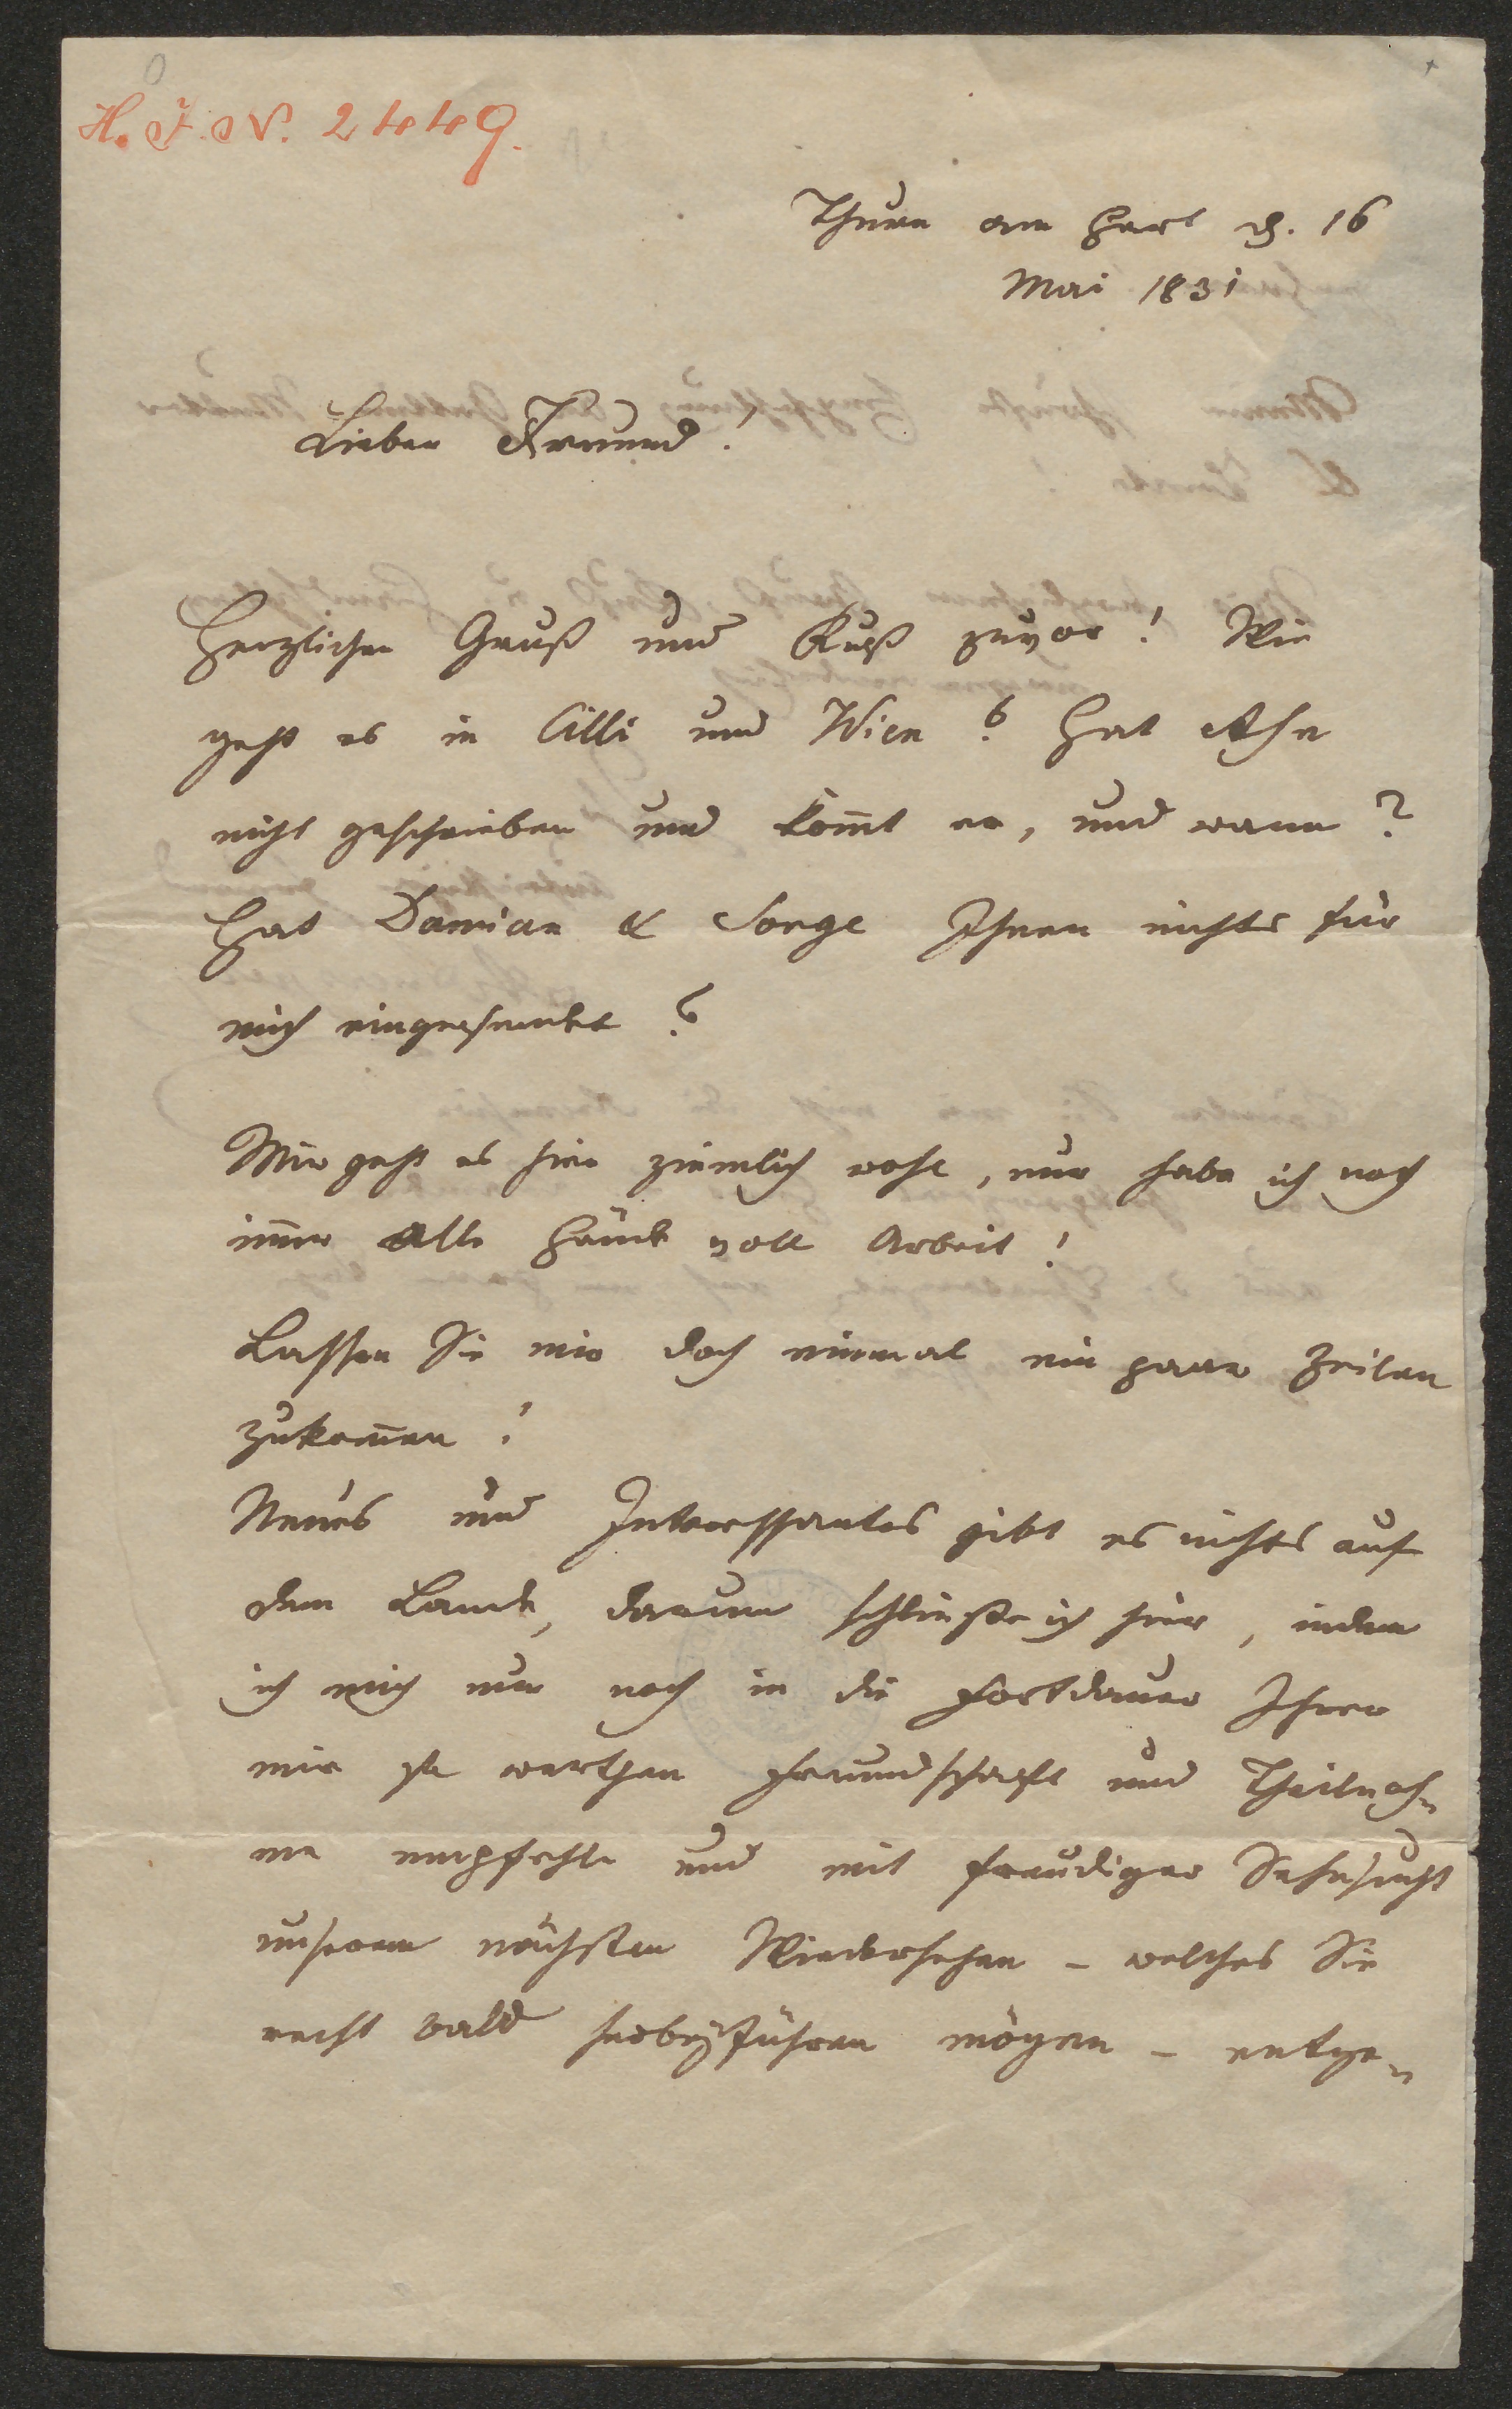 H. I. N. 2449.
Thurn am Hart d. 16
Mai 1831
Lieber Freund!
Herzlichen Gruß und Kuß zuvor! Wie
geht es in Cilli und Wien? Hat
nicht geschrieben und kom̄t er, und wann?
Hat Damian & Sorge Ihnen nichts für
mich eingesendet?
Mir geht es hier ziemlich wohl, nur habe ich noch
im̄er alle Hände voll Arbeit!
Lassen Sie mir doch einmal ein paar Zeilen
zukom̄en!
Neues und Interessantes gibt es nichts auf
dem Lande, darum schließe ich hier, indem
ich mich nur noch in die Fortdauer Ihrer
mir so werthen Freundschaft und Theilnah-
me empfehle und mit freudiger Sehnsucht
unserem nächsten Wiedersehen – welches Sie
recht bald herbeyführen mögen – entge-